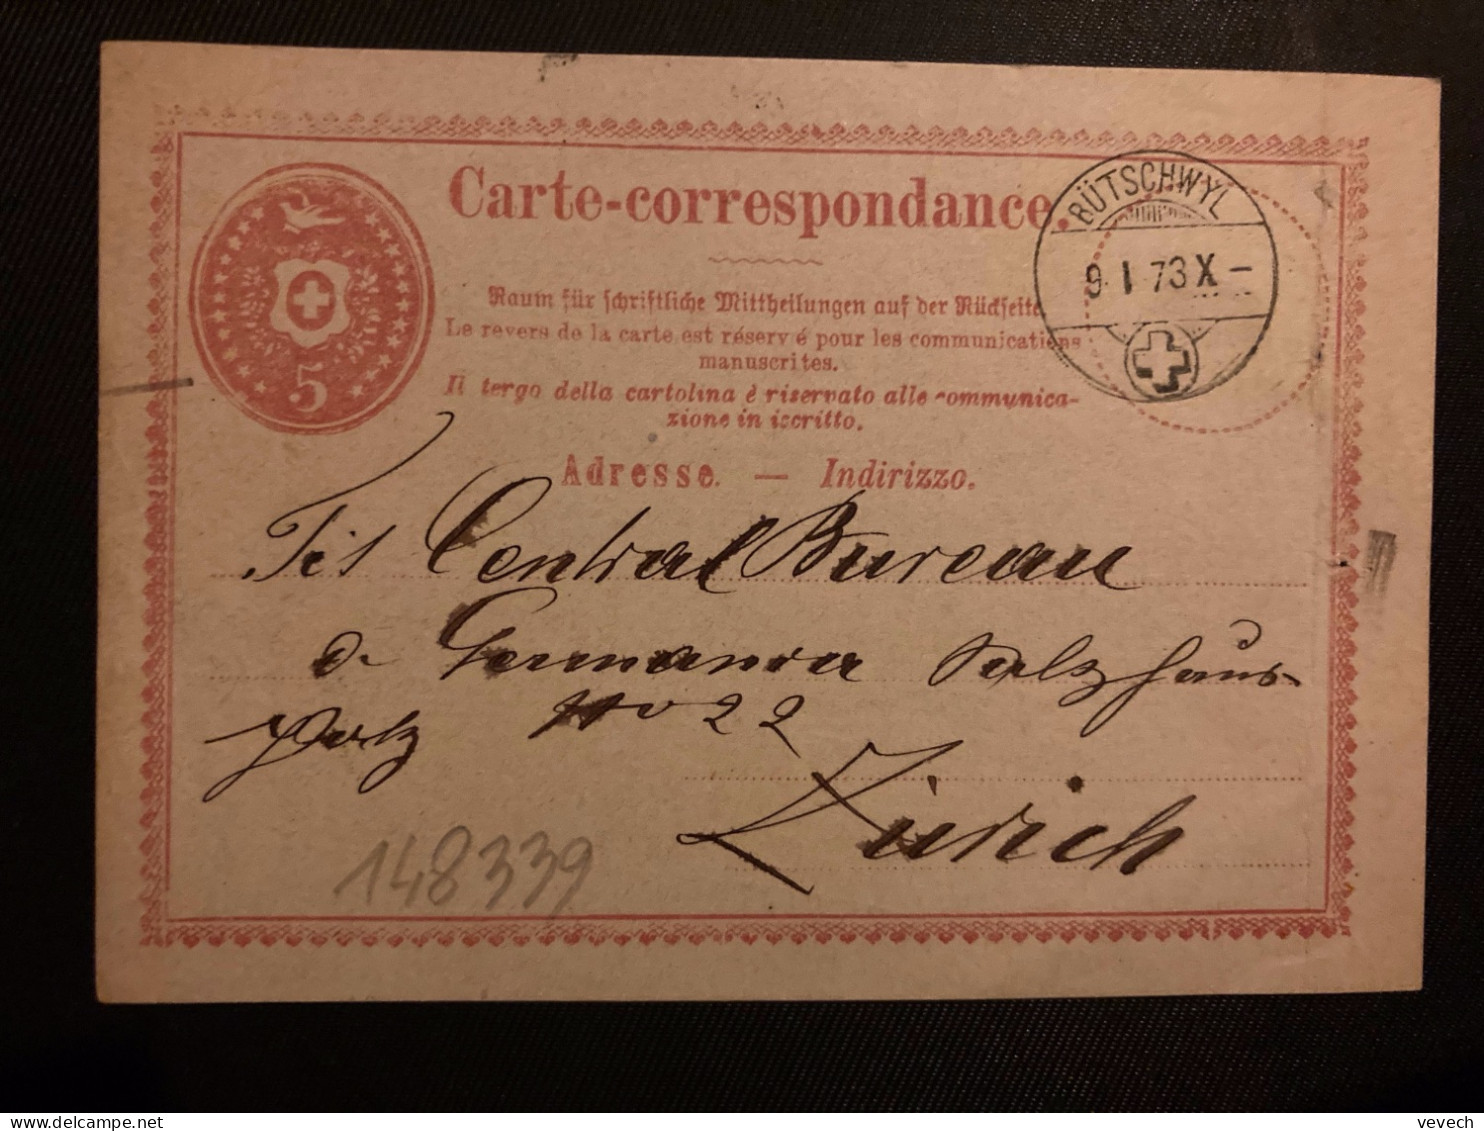 Carte-correspondance.
BÜTSCHWYL
9 I 73 X –
Raum für schriftliche Mittheilungen auf der Rückseite
Le revers de la carte est réservé pour les communications
manuscrites.
Il tergo della cartolina è riservato alle communica-
zione in iscritto.
5
Adresse. — Indirizzo.
Tit Central Bureau
d. Germania Salzhaus-
No 22
Zürich
148339
vevech